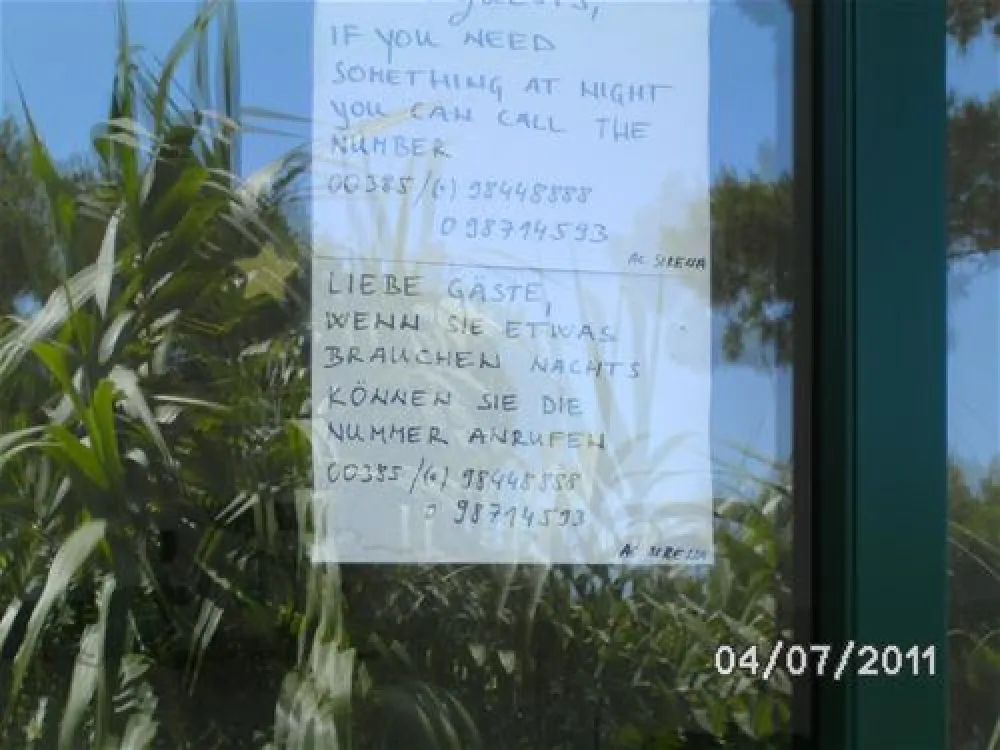 guests,
IF YOU NEED
SOMETHING AT NIGHT
YOU CAN CALL THE
NUMBER
00385/(0) 98448888
0 98714593
AC SIRENA
LIEBE GÄSTE,
WENN SIE ETWAS
BRAUCHEN NACHTS
KÖNNEN SIE DIE
NUMMER ANRUFEN
00385/(0) 98448888
0 98714593
AC SIRENA
04/07/2011